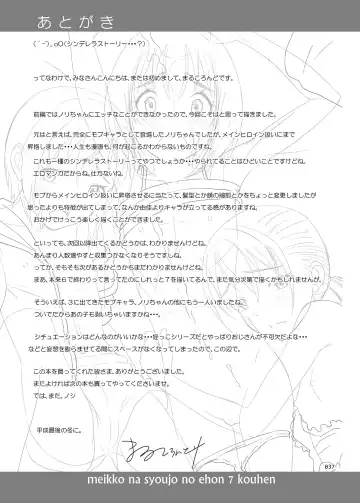 あとがき
(´-)_oO(シンデレラストーリー・・・？)
ってなわけで、みなさんこんにちは、または初めまして、まるころんどです。
前編ではノリちゃんにエッチなことができなかったので、今回こそはと思って描きました。
元はと言えば、完全にモブキャラとして登場したノリちゃんでしたが、メインヒロイン扱いにまで
昇格しました・・・人生も漫画も、何が起こるかわからないもんですね。
これも一種のシンデレラストーリーってやつでしょうか・・・やられてることはひどいことですけどね。
エロマンガだからね、仕方ないね。
モブからメインヒロイン扱いに昇格させるに当たって、髪型とか顔の細部とかをちょっと変更しましたが
思ったよりも特徴が出てしまって、なんか由佳よりキャラが立ってる感があります。
おかげでけっこう楽しく描くことができました。
といっても、次回以降出てくるかどうかは、わかりませんけどね。
あんまり人数増やすと収集つかなくなりそうですし。
ってか、そもそも次があるかどうかもまだわかりませんけどね。
まあ、本来６で終わりって言ってたのにしれっと７を描いてるんで、また気分次第で描くかもしれませんが。
そういえば、３に出てきたモブキャラ、ノリちゃんの他にもう一人いましたね。
ついでだからあの子も剥いちゃいますかね・・・。
シチュエーションはどんなのがいいかな・・・姪っこシリーズだとやっぱりおじさんが不可欠だよな・・・
などと妄想を膨らませてる間にスペースがなくなってしまったので、この辺で。
この本を買ってくれた皆さま、ありがとうございます。
またよければ次の本も買ってやってくださいませ。
では、まだ、ノシ
平成最後の冬に。
037
meikko na syoujo no ehon 7 kouhen